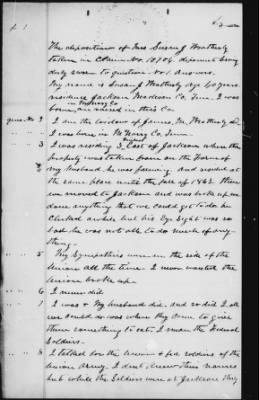 The deposition of Mrs Susan J Weatherly
taken in Claim No. 10704 deponent being
duly sworn to question No 1 Answers.
My name is Susan J Weatherly Age 40 years
residence Jackson Madison Co. Tenn. I was
born in McNairy Co
ques. No 2 I am the widow of James M. Weatherly
I was born in McNairy Co Tenn
3 I was residing 3 East of Jackson when the
property was taken from on the Farm of
my husband, he was farming. And resided at
the same place until the fall of 1863. Then
we moved to Jackson and was broke up and
done anything that we could get to do he
Clerked awhile but his Eye Sight was so
bad he was not able to do much of any
thing.
5 My Sympathies were on the side of the
Union all the time I never wanted the
Union broke up
6 I never did
7 I was & My husband did. and so did I all
we could do was when they came to give
them something to eat. I mean the Federal
Soldiers.
8 I talked for the Union & fed soldiers of the
Union Army. I dont know their names
but while the Soldiers were at Jackson they